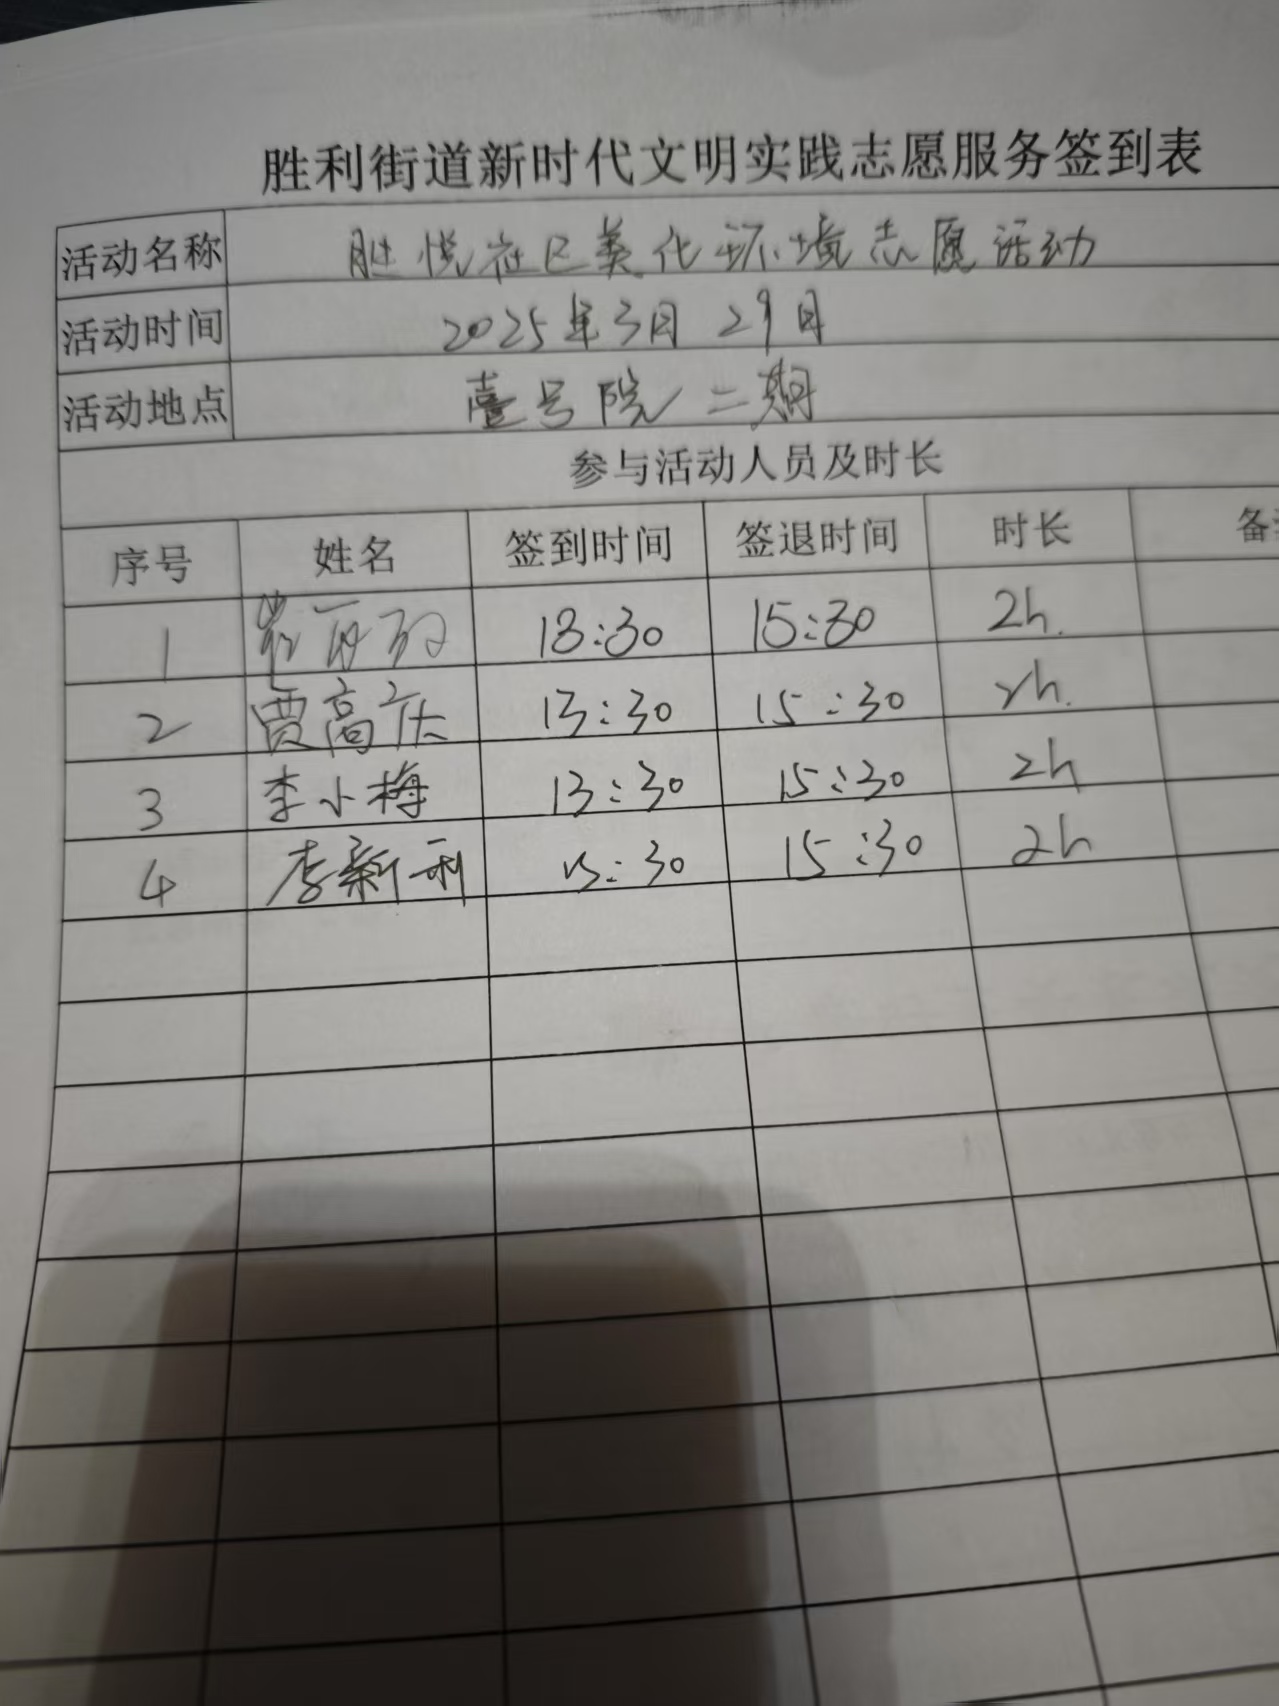 胜利街道新时代文明实践志愿服务签到表
活动名称 胜悦社区美化环境志愿活动
活动时间 2025年3月29日
活动地点 壹号院二期
参与活动人员及时长
序号 姓名 签到时间 签退时间 时长 备
1 13:30 15:30 2h.
2 贾高庆 13:30 15:30 2h.
3 李小梅 13:30 15:30 2h
4 李新利 13:30 15:30 2h